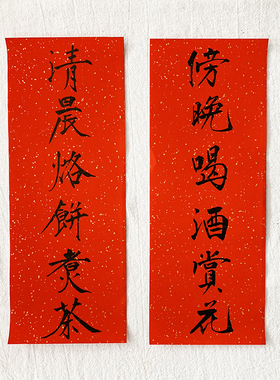 傍晚喝酒賞花
清晨烙餅煮茶